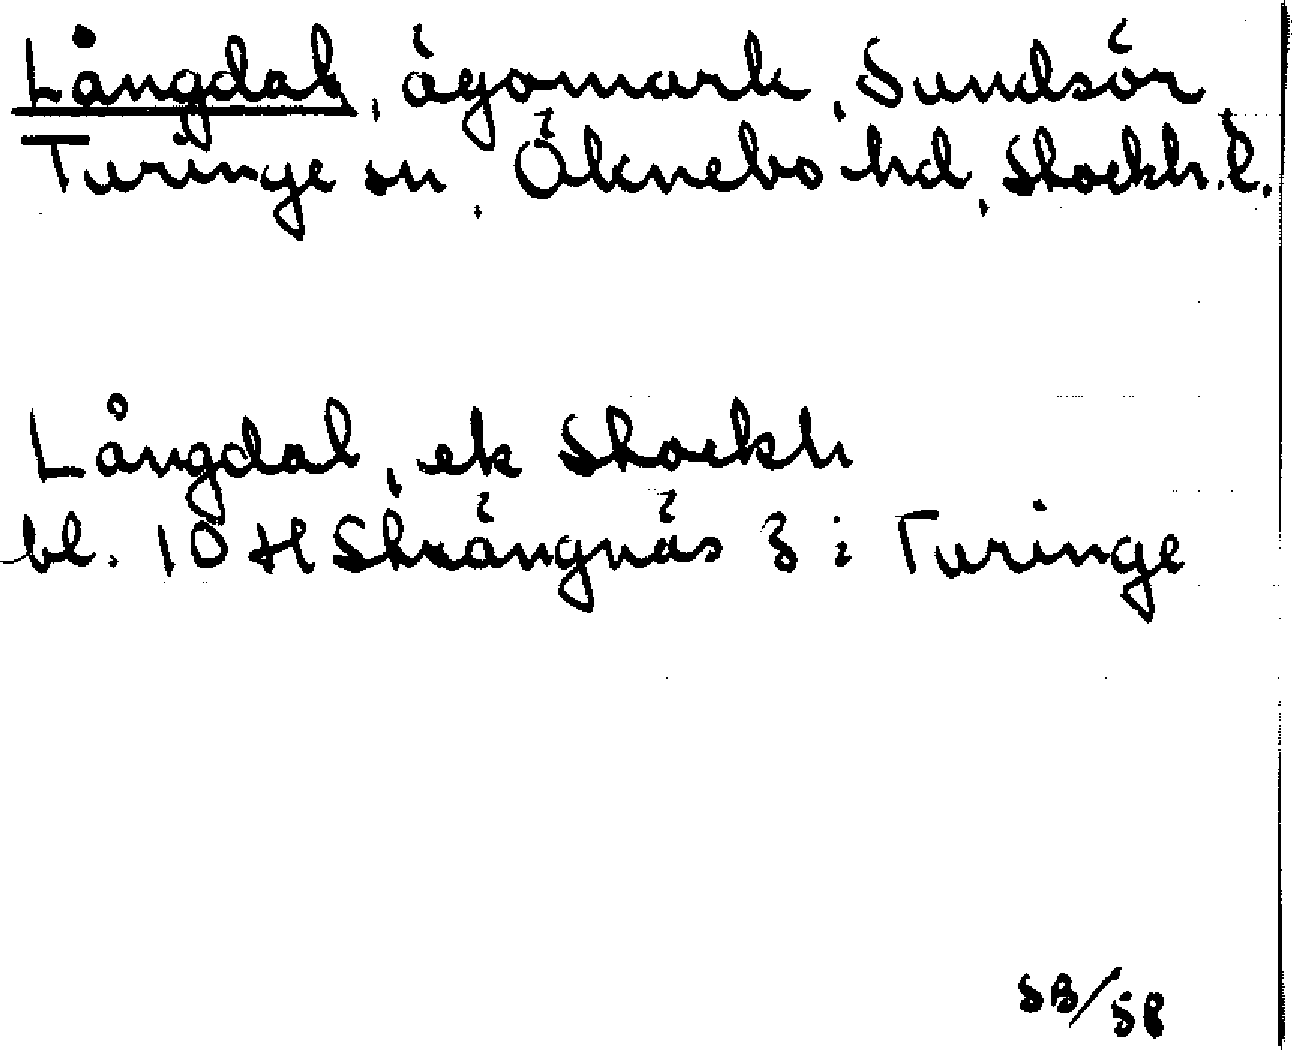 Långdal, ägomark, Sundsör
Turinge sn, Öknebo hd, Stockh. l.
Långdal, ek Stockh
bl. 10 H Strängnäs 3 i Turinge
SB/SB